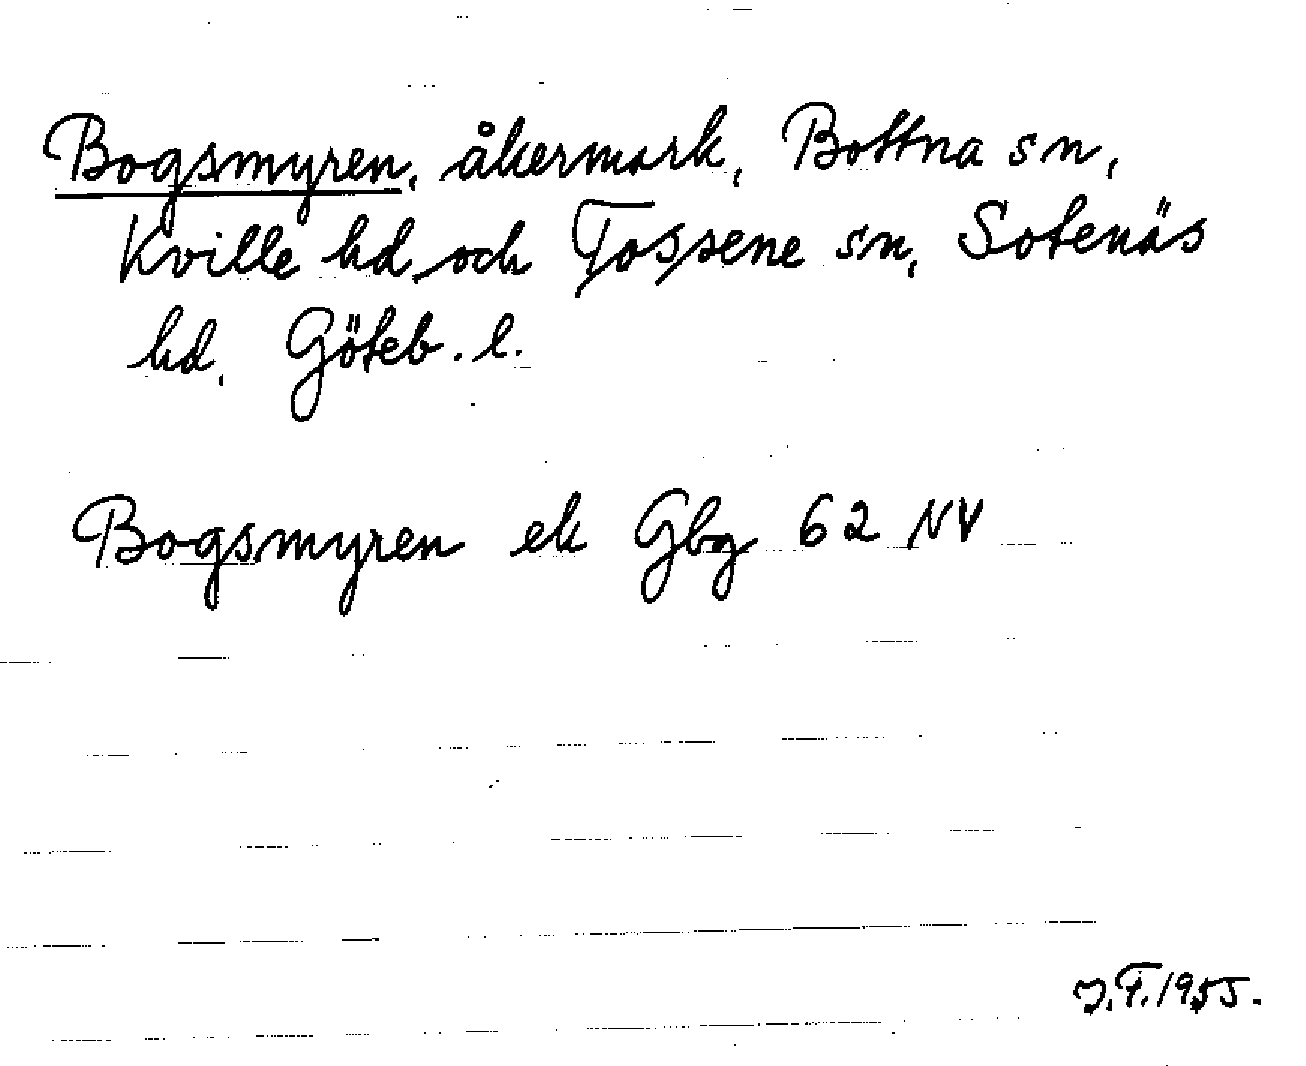 Bogsmyren, åkermark, Bottna sn,
Kville hd, och Tossene sn, Sotenäs
hd, Göteb. l.
Bogsmyren ek Gbg 62 NV
J.F. 1955.